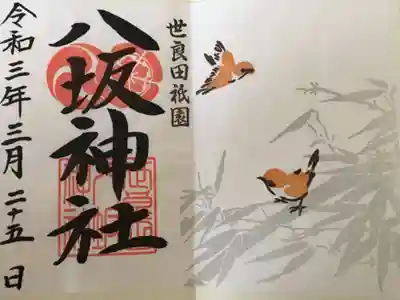 世良田祇園
八坂神社
令和三年三月二十五日